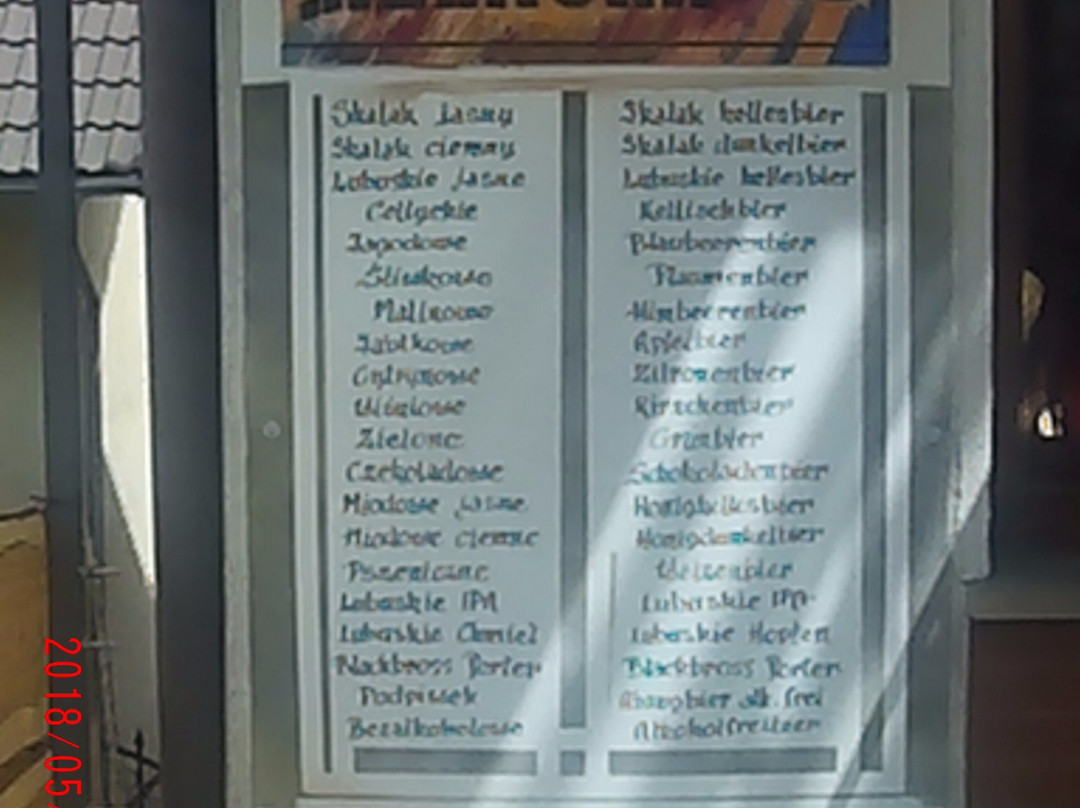 Skalak jasny
Skalak ciemny
Lubuskie jasne
Celtyckie
Jagodowe
Śliwkowe
Malinowe
Jabłkowe
Cytrynowe
Wiśniowe
Zielone
Czekoladowe
Miodowe jasne
Miodowe ciemne
Pszeniczne
Lubuskie IPA
Lubuskie Chmiel
Blackbross Porter
Podpiwek
Bezalkoholowe
Skalak hellesbier
Skalak dunkelbier
Lubuskie hellesbier
Keltischbier
Blaubeerenbier
Flaumenbier
Himbeerenbier
Apfelbier
Zitronenbier
Kirschenbier
Grünbier
Schokoladenbier
Honighellesbier
Honigdunkelbier
Weizenbier
Lubuskie IPA
Lubuskie Hopfen
Blackbross Porter
alk. frei
2018/05